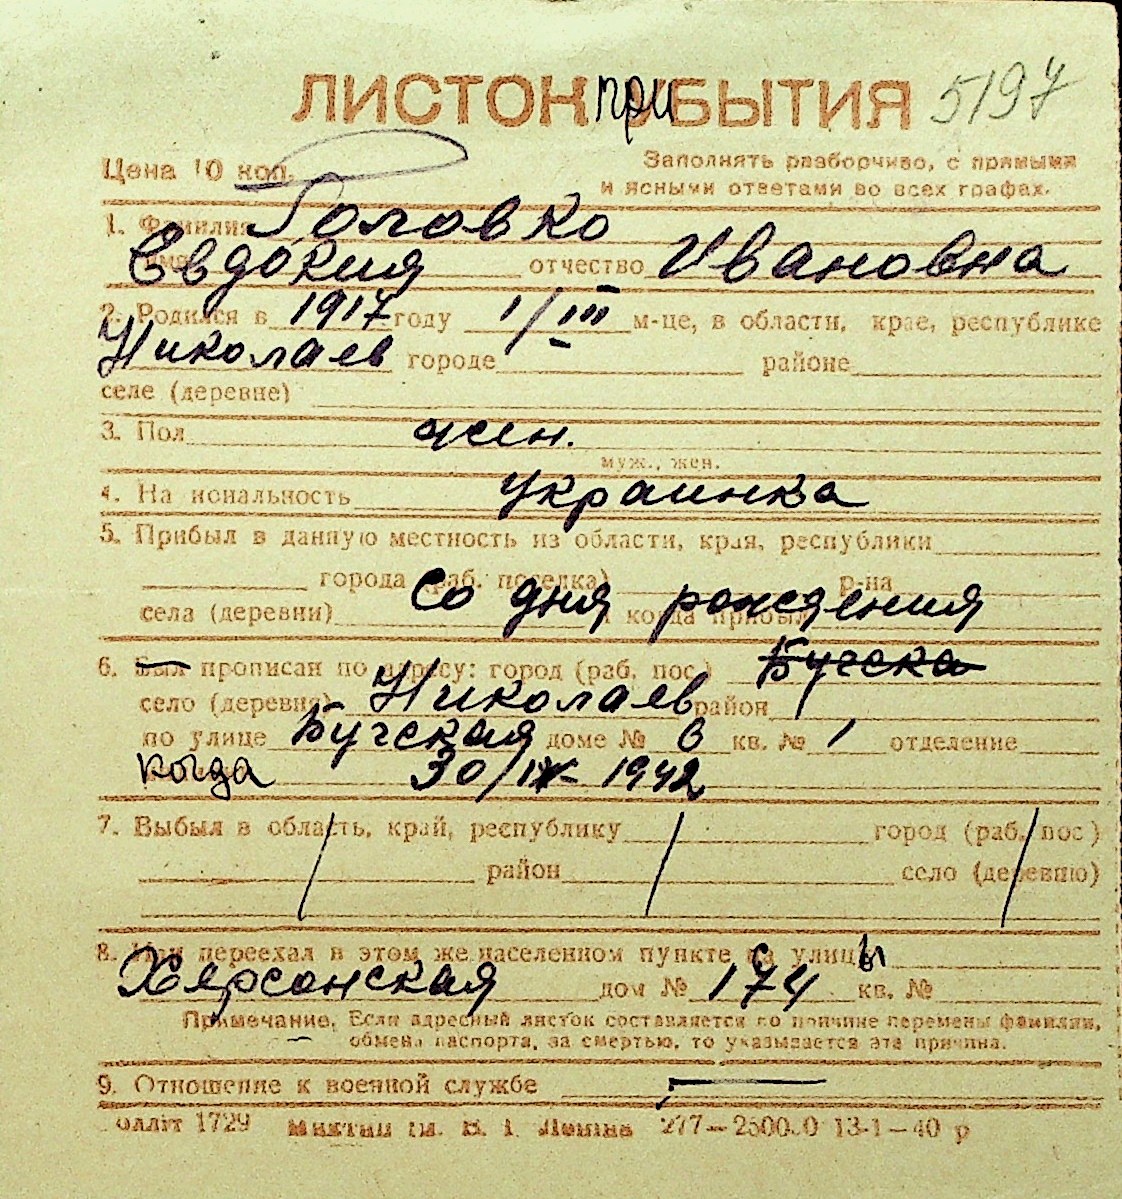 ЛИСТОК прИБЫТИЯ 5197
Цена 10 коп. Заполнять разборчиво, с прямыми
и ясными ответами во всех графах.
1. Фамилия Головко
имя Евдокия отчество Ивановна
2. Родился в 1917 году 1/III м-це, в области, крае, республике
Николаев городе районе
селе (деревне)
3. Пол жен.
муж., жен.
4. На иональность украинка
5. Прибыл в данную местность из области, края, республики
города (раб. поселка) р-на
села (деревни) Со дня рождения и когда прибыл
6. Был прописан по адресу: город (раб. пос.) Бугска
село (деревня) Николаев район
по улице Бугская доме № 6 кв. № 1 отделение
когда 30/IX 1942
7. Выбыл в область, край, республику город (раб. пос.)
район село (деревню)
8. Или переехал в этом же населенном пункте са улицы
Херсонская дом № 174 кв. №
Примечание. Если адресный листок составляется по причине перемены фамилии,
обмена паспорта, за смертью, то указывается эта причина.
9. Отношение к военной службе
олліт 1729 им. В. І. Леніна 277—2500.0 13-1—40 р